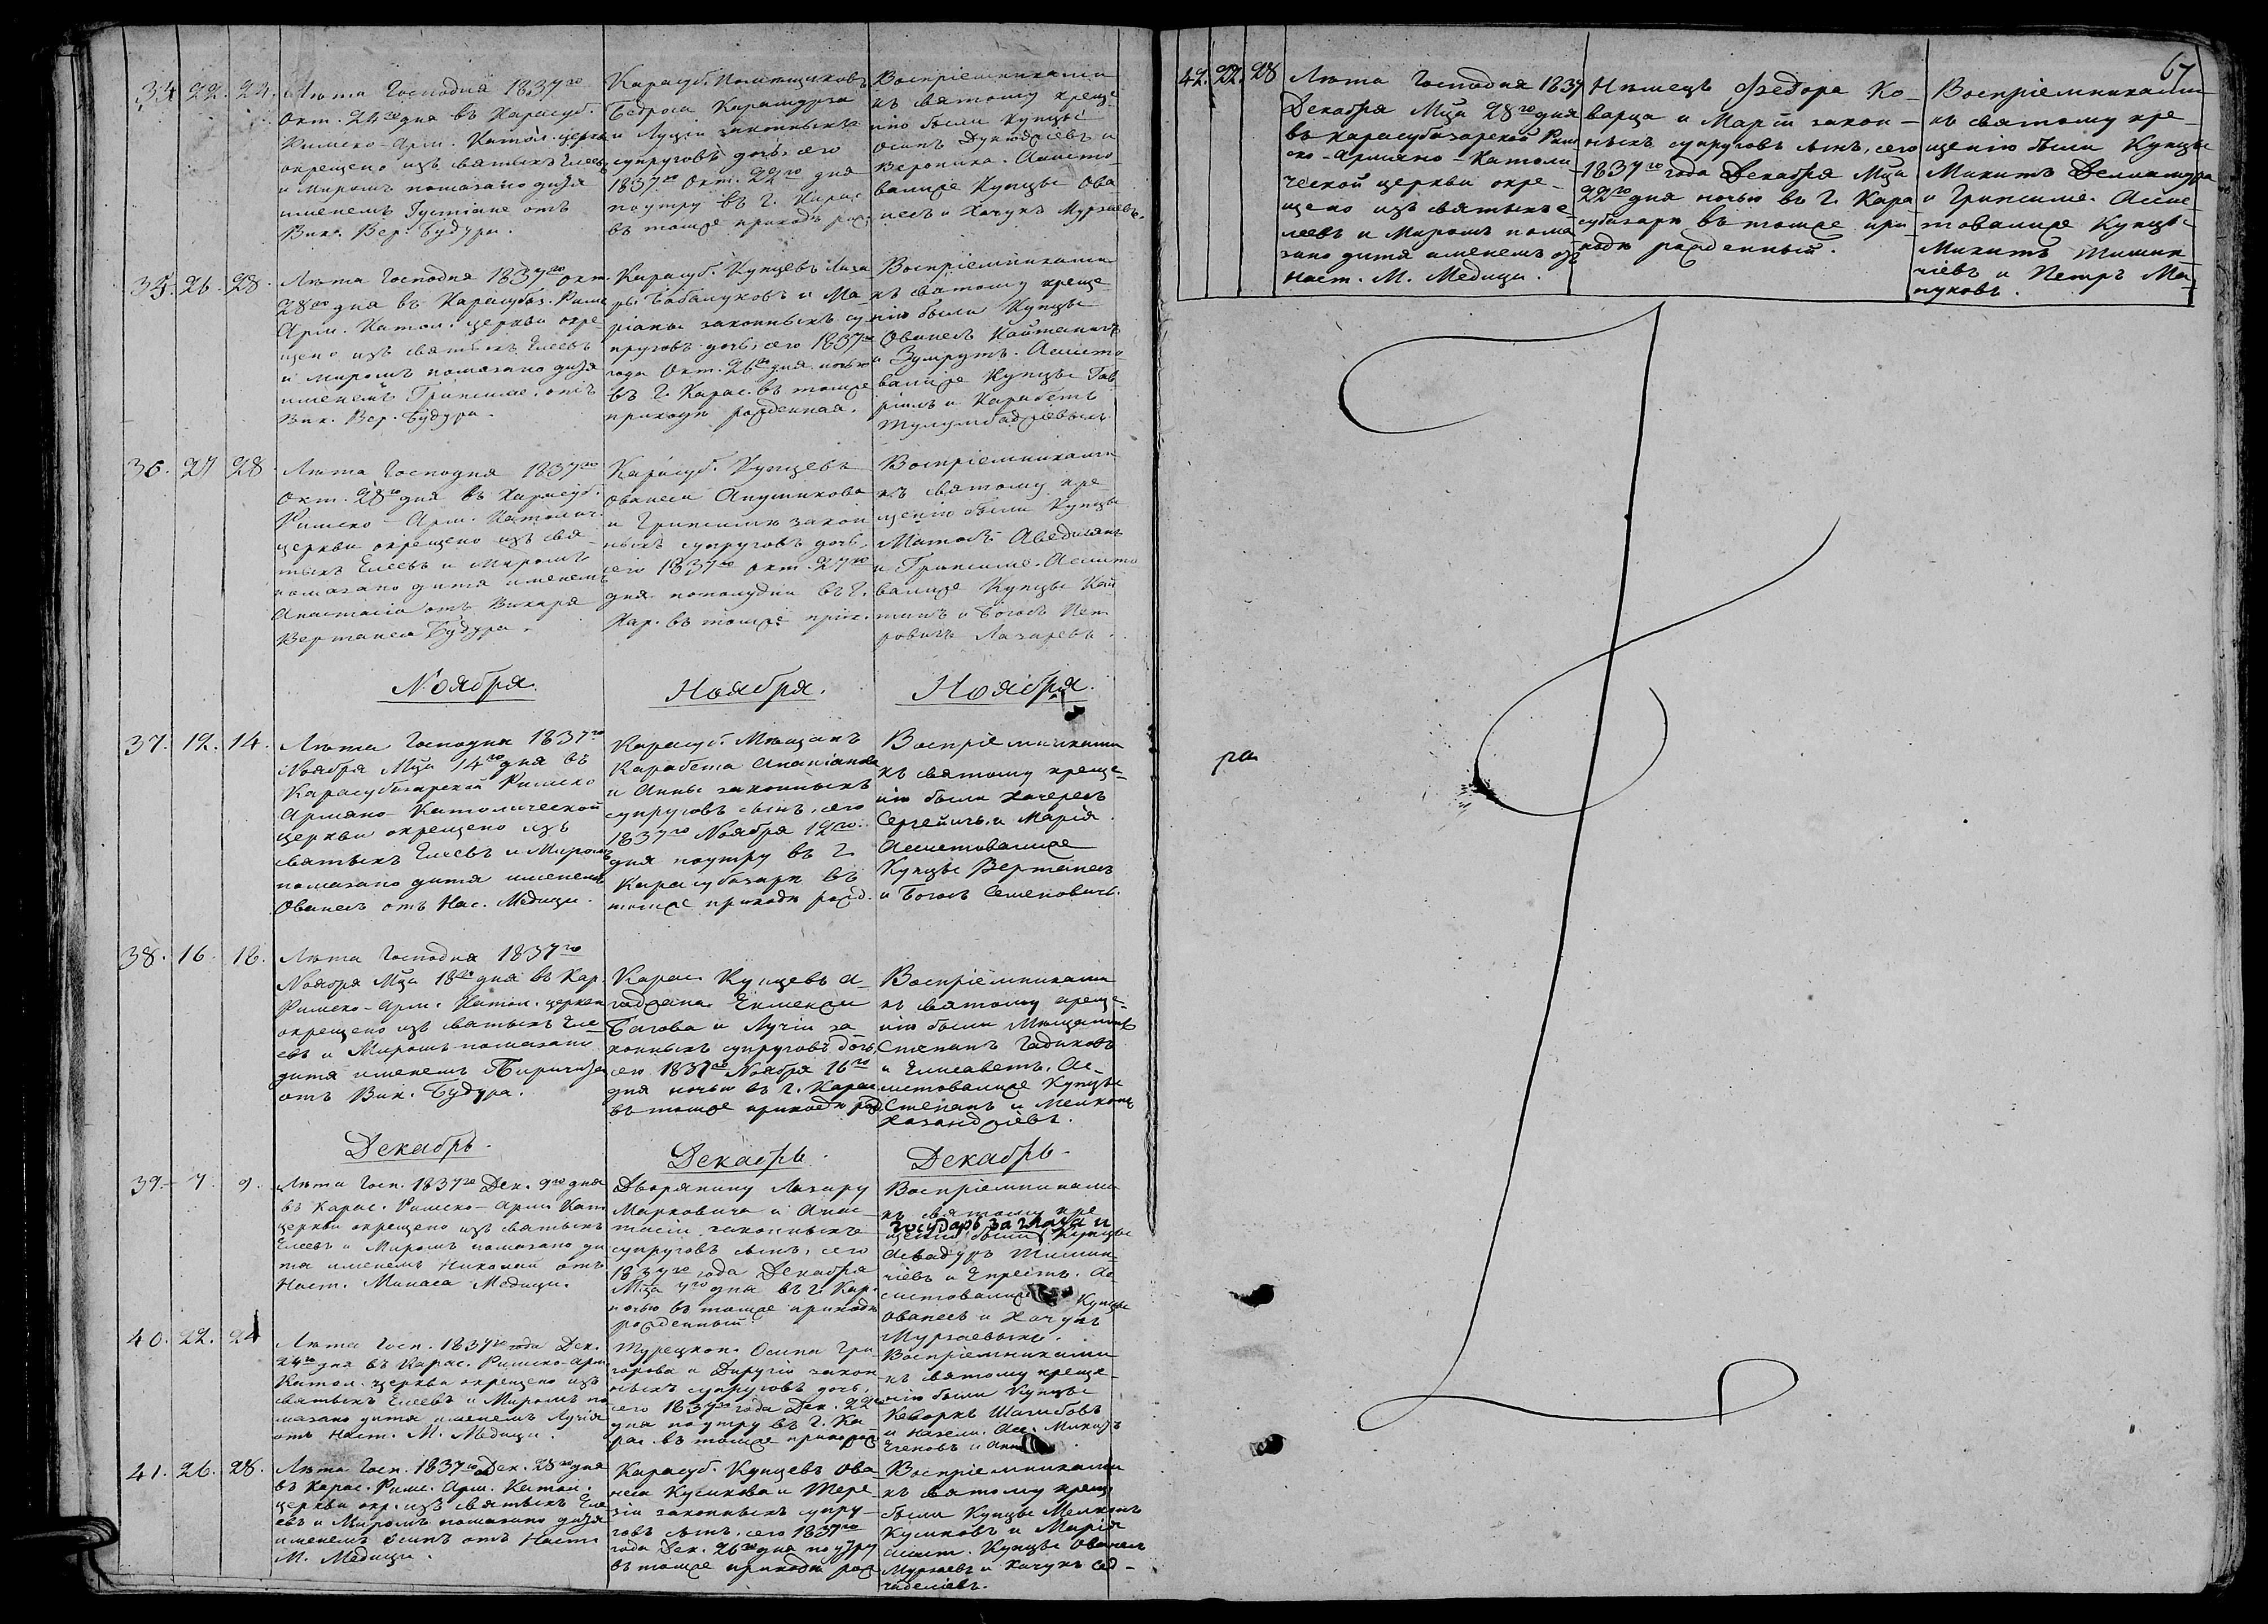 34. 22. 24. Лѣта Господня 1837го
Окт. 24го дня въ Карасуб.
Римско-Арм. Катол. церкв
окрещено изъ святыхъ Елеевъ
и Миромъ помазано дитя
именемъ Густіане отъ
Вик. Вер. Будура.
Карасуб. Помѣщиковъ
Бедроса Карамурза
и Луціи законныхъ
супруговъ дочь, сего
1837го Окт. 22го дня
поутру въ Г. Карас
въ томже приходѣ рожд
Воспріемниками
къ святому креще
нію были Купцы
Осипъ
Вероника. Ассисто
вавшіе Купцы Ова
несъ и Хачукъ Мурзаевъ.
35. 26. 28. Лѣта Господня 1837го Окт.
28го дня въ Карасубаз. Римс
Арм. Катол. церкви окре
щено изъ святыхъ Елеевъ
и миромъ помазано дитя
именемъ Грипсиме, отъ
Вик. Вер. Будура.
Карасуб. Купцевъ Лаза
ры Бабалуковъ и Ма
ріаны законныхъ су
пруговъ дочь, сего 1837го
года Окт. 26го дня ночью
въ Г. Карас. въ томже
приходѣ рожденная.
Воспріемниками
къ святому креще
нію были Купцы
Ованесъ
и Зумрутъ. Ассисто
вавшіе Купцы Гав
ріилъ и Карабетъ
Тулумбаджіевыхъ
36. 27 28. Лѣта Господня 1837го
Окт. 28го дня въ Карасуб.
Римско-Арм. Католич.
церкви окрещено изъ свя
тыхъ Елеевъ и Миромъ
помазано дитя именемъ
Анастасіа отъ Викаря
Вертанеса Будура.
Карасуб. Купцевъ
Ованеса Апушикова
и Грипсимѣ закон
ныхъ супруговъ дочь,
сего 1837го Окт. 27го
дня пополудни въ Г.
Кар. въ томже прих.
Воспріемниками
къ святому кре
щенію были Купцы
Матосъ Аведикянъ
и Грипсиме. Ассисто
вавшіе Купцы Кай
танъ и Богосъ Пет
ровичъ Лазаревъ.
Ноября.
Ноября.
Ноября.
37. 12. 14. Лѣта Господня 1837го
Ноября Мца 14го дня въ
Карасубазарской Римско
Армяно-Католической
церкви окрещено изъ
святыхъ Елеевъ и Миромъ
помазано дитя именемъ
Ованесъ отъ Нас. Медици.
Карасуб. Мѣщанъ
Карабета Апаніанова
и Анны законныхъ
супруговъ сынъ, сего
1837го Ноября 12го
дня поутру въ Г.
Карасубазарѣ въ
томже приходѣ рожд.
Воспріемниками
къ святому креще-
нію были Хачересъ
Сергеичъ, и Марія.
Ассистовавшіе
Купцы Вертанесъ
и Богосъ Семеновичъ.
38. 16. 18. Лѣта Господня 1837го
Ноября Мца 18го дня въ Кар.
Римско-Арм. Катол. церкви
окрещено изъ святыхъ Еле
евъ и Миромъ помазано
дитя именемъ
отъ Вик. Будура.
Карас. Купцевъ А-
гаджана Екмекжи
Багова и Лучіи за
конныхъ супруговъ дочь,
сего 1837го Ноября 16го
дня ночью въ Г. Карас
въ томже приходѣ рожд
Воспріемниками
къ святому креще-
нію были Мѣщанинъ
Степанъ Гадиковъ
и Елисаветъ. Ас-
систовавшіе Купцы
Степанъ и Мелконъ
Казанджіевъ.
Декабрь.
Декабрь.
Декабрь.
39. 7. 9. Лѣта Госп. 1837го Дек. 9го дня
въ Карас. Римско-Арм. Кат
церкви окрещено изъ святыхъ
Елеевъ и Миромъ помазано ди
тя именемъ Николай отъ
Наст. Минаса Медици.
Дворянину Лазару
Марковича и Анас-
тасіи законныхъ
супруговъ сынъ, сего
1837го года Декабря
Мца 7го дня въ Г. Кар.
ночью въ томже приходѣ
рожденный
Воспріемниками
къ святому кре
Государь
щенію были Купцы
Асвадуръ Тишин-
чіевъ и Епрестъ. Ас-
систовавшіе Купцы
Ованесъ и Хачукъ
Мурзаевыхъ.
40. 22. 24 Лѣта Госп. 1837го года Дек.
24го дня въ Карас. Римско-Арм
Катол. церкви окрещено изъ
святыхъ Елеевъ и Миромъ по
мазано дитя именемъ Лучія
отъ Наст. М. Медици.
Турецкоп. Осипа Гри-
горова и Диругіи закон
ныхъ супруговъ дочь,
сего 1837го года Дек. 22го
дня поутру въ Г. Ка-
рас въ томже приход рож
Воспріемниками
къ святому креще-
нію были Купцы
Кеворкъ Шагибовъ
и Назели. Асс. Микитъ
Егеновъ и
41. 26. 28. Лѣта Госп. 1837го Дек. 28го дня
въ Карас. Римс. Арм. Катол.
церкви окр. изъ святыхъ Еле
евъ и Миромъ помазано дитя
именемъ Осипъ отъ Наст
М. Медици.
Карасуб. Купцевъ Ова
неса Кусикова и Тере-
зіи законныхъ супру-
говъ сынъ, сего 1837го
года Дек. 26го дня поутру
въ томже приходѣ рож
Воспріемниками
къ святому крещ
были Купцы Мелконъ
Кусиковъ и Марія
Ассист. Купцы Ованесъ
Мурзаевъ и Хачукъ Сед-
67
42. 22. 28 Лѣта Господня 1837
Декабря Мца 28го дня
въ Карасубазарской Рим
ско-Армяно-Католи
ческой церкви окре-
щено изъ святыхъ е-
леевъ и Миромъ пома
зано дитя именемъ
Наст. М. Медици.
Нѣмецъ Федора Ко-
варца и Маріи закон-
ныхъ супруговъ сынъ, сего
1837го года Декабря Мца
22го дня ночью въ Г. Кара
субазарѣ въ томже при
ходѣ рожденный.
Воспріемниками
къ святому кре-
щенію были Купцы
Микитъ
и Грипсиме. Асси-
стовавшіе Купцы
Микитъ Тишин-
чіевъ и Петръ Ма-
нуковъ.
ра